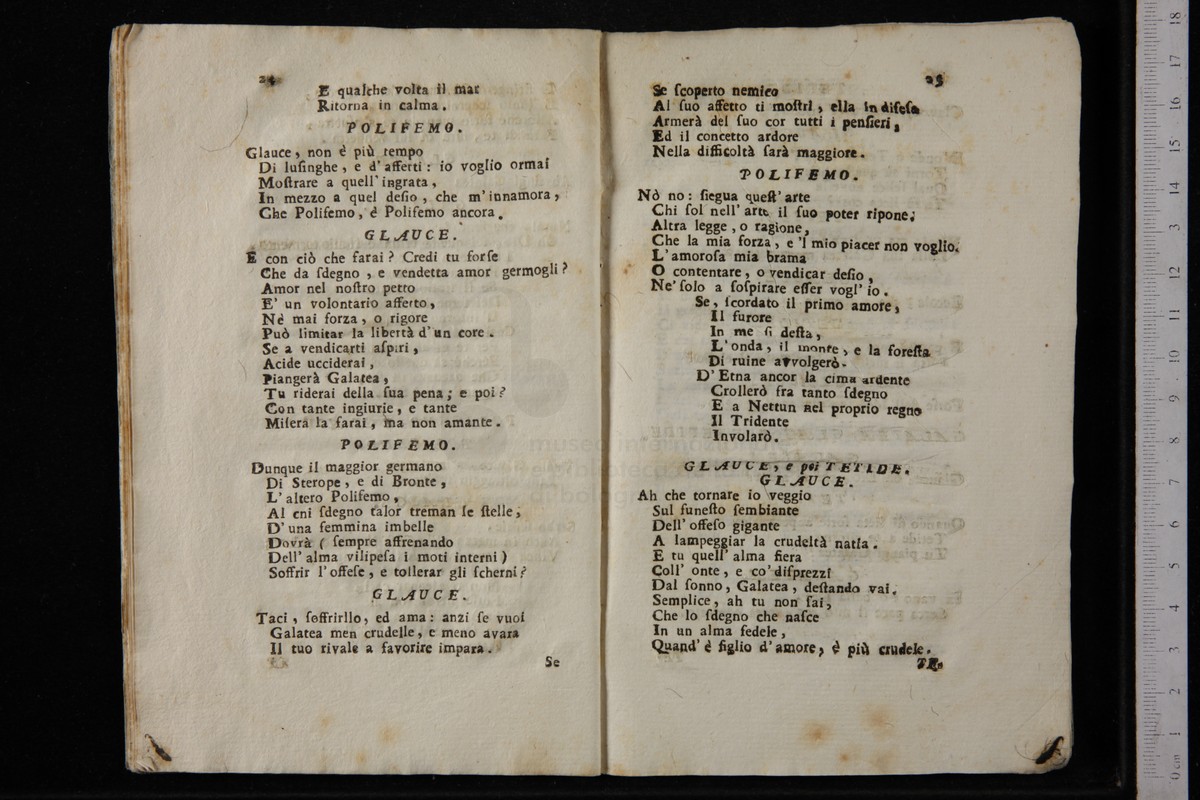 24
E qualche volta il mar
Ritorna in calma.
POLIFEMO.
Glauce, non è più tempo
Di luſinghe, e d'affetti: io voglio ormai
Moſtrare a quell'ingrata,
In mezzo a quel deſio, che m'innamora,
Che Polifemo, è Polifemo ancora.
GLAUCE.
E con ciò che farai? Credi tu forſe
Che da ſdegno, e vendetta amor germogli?
Amor nel noſtro petto
E' un volontario affetto,
Nè mai forza, o rigore
Può limitar la libertà d'un core.
Se a vendicarti aſpiri,
Acide ucciderai,
Piangerà Galatea,
Tu riderai della ſua pena; e poi?
Con tante ingiurie, e tante
Miſera la farai, ma non amante.
POLIFEMO.
Dunque il maggior germano
Di Sterope, e di Bronte,
L'altero Polifemo,
Al cui ſdegno talor treman le ſtelle,
D'una femmina imbelle
Dovrà (ſempre affrenando
Dell'alma vilipeſa i moti interni)
Soffrir l'offeſe, e tollerar gli ſcherni?
GLAUCE.
Taci, ſoffrirllo, ed ama: anzi ſe vuoi
Galatea men crudelle, e meno avara
Il tuo rivale a favorire impara.
Se
25
Se ſcoperto nemico
Al ſuo affetto ti moſtri, ella in difeſa
Armerà del ſuo cor tutti i penſieri,
Ed il concetto ardore
Nella difficoltà ſarà maggiore.
POLIFEMO.
Nò no: ſiegua queſt'arte
Chi ſol nell'arte il ſuo poter ripone;
Altra legge, o ragione,
Che la mia forza, e 'l mio piacer non voglio.
L'amoroſa mia brama
O contentare, o vendicar deſio,
Ne' ſolo a ſoſpirare eſſer vogl'io.
Se, ſcordato il primo amore,
Il furore
In me ſi deſta,
L'onda, il monte, e la foreſta
Di ruine avvolgerò.
D'Etna ancor la cima ardente
Crollerò fra tanto ſdegno
E a Nettun nel proprio regno
Il Tridente
Involarò.
GLAUCE, e poi TETIDE.
GLAUCE.
Ah che tornare io veggio
Sul funeſto ſembiante
Dell'offeſo gigante
A lampeggiar la crudeltà natia.
E tu quell'alma fiera
Coll'onte, e co'diſprezzi
Dal ſonno, Galatea, deſtando vai.
Semplice, ah tu non ſai,
Che lo ſdegno che naſce
In un alma fedele,
Quand'è figlio d'amore, è più crudele.
TE-